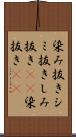 染み抜きシ
ミ抜きしみ
抜き 染
抜き